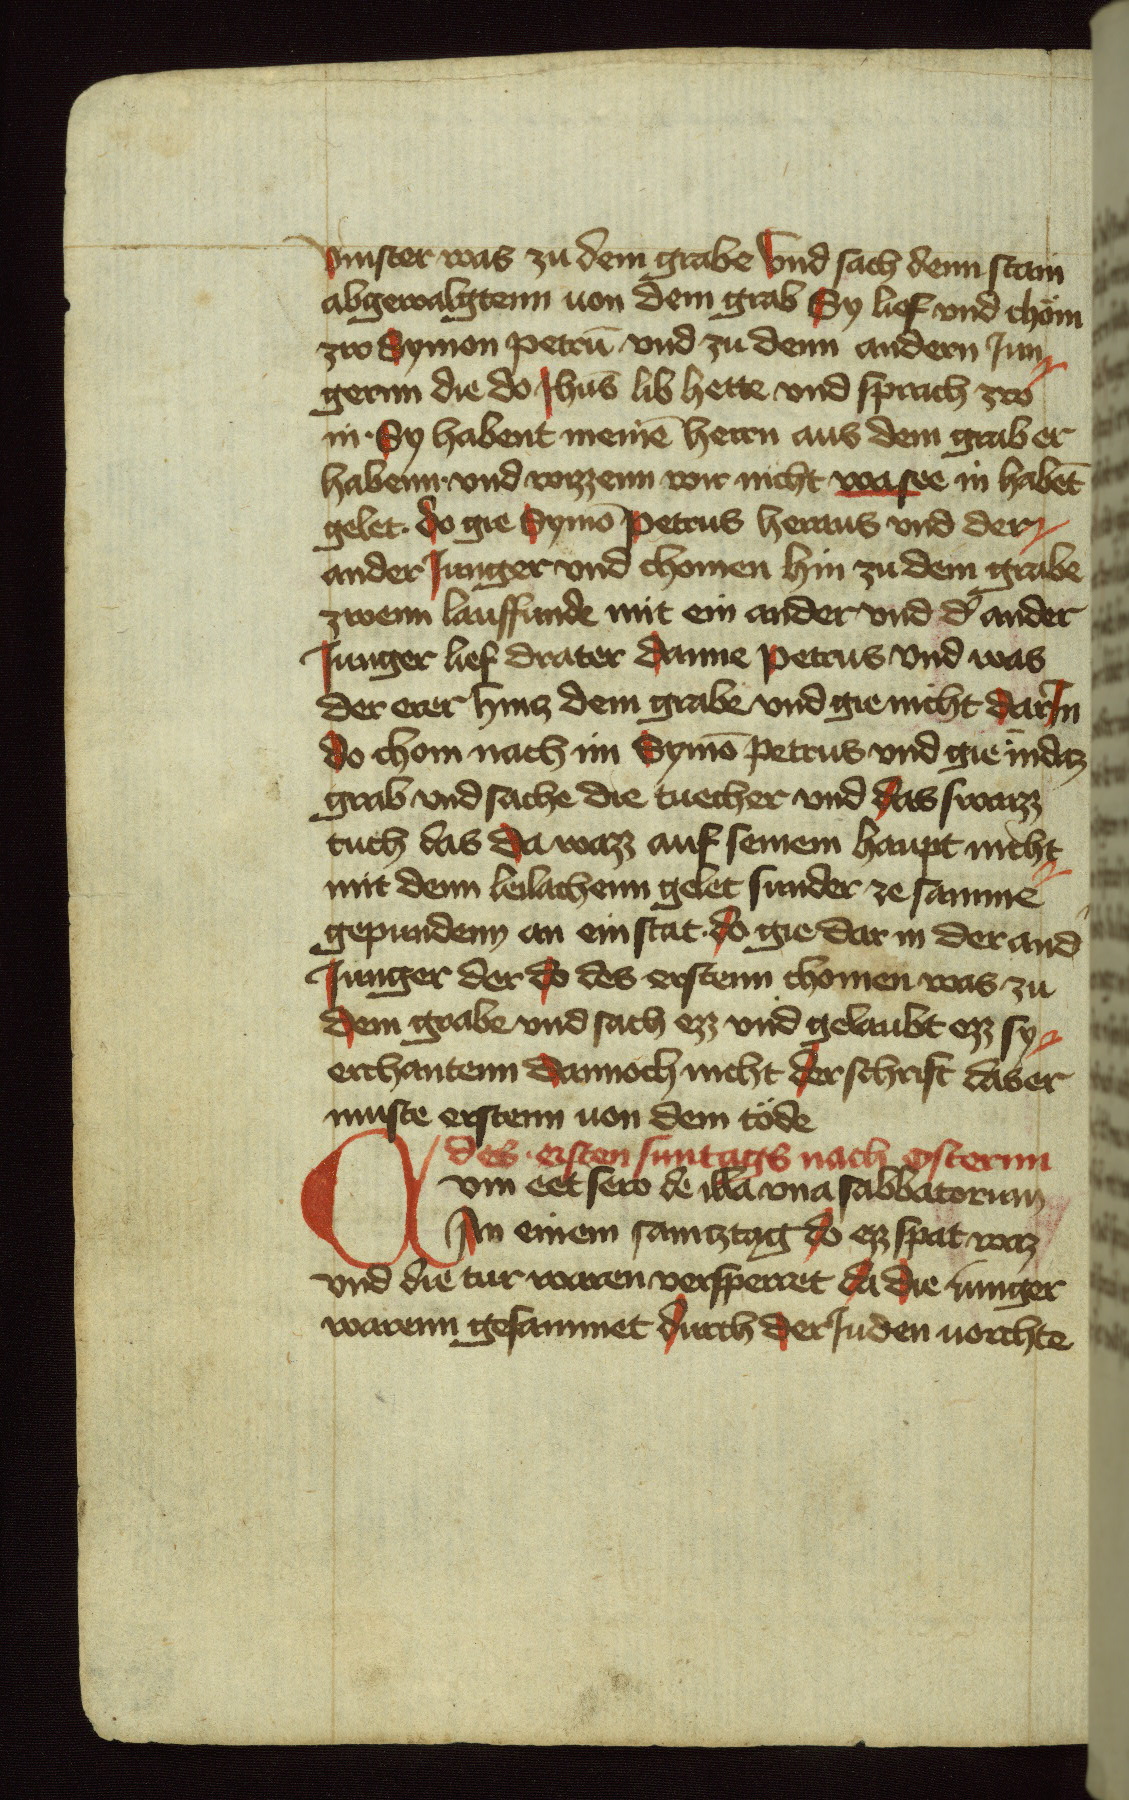 vinster was zu dem grabe Vnd sach denn stain
abgewalgtenn uon dem grab Sy lief vnd chöm
zw Symon petrū vnd zu denn andern Jun
gernn die do Jhūs lib hette vnd sprach zw
in · Sy habent meinē herrn aus dem grab er
habenn · vnd wizzenn wir nicht wa see in habēt
gelet · do gie Symō petrus heraus vnd der
ander Junger vnd chomen hin zu dem grabe
zwenn lauffunde mit ein ander vnd d' ander
Junger lief drater danne petrus vnd was
der erer hintz dem grabe vnd gie nicht dar Jn
do chom nach im Symō petrus vnd gie in datz
grab vnd sache die tuecher vnd das swaizz
tuch das da wazz auf seinem haupt nicht
mit denn leilachenn gelet sunder ze samme
gepundenn an ein stat · do gie dar in der and'
Junger der do des erstenn chomen was zu
dem grabe vnd sach ezz vnd gelaubt ezz sy
erchantenn dannoch nicht der schrift das er
muste erstenn uon dem töde
des · ersten suntags nach osternn
Cvm eet sero de illa vna sabbatorum
An einem samtztag do ez spat waz
vnd die tur waren versperret da die iunger
warenn gesammet durch der Juden uorchte